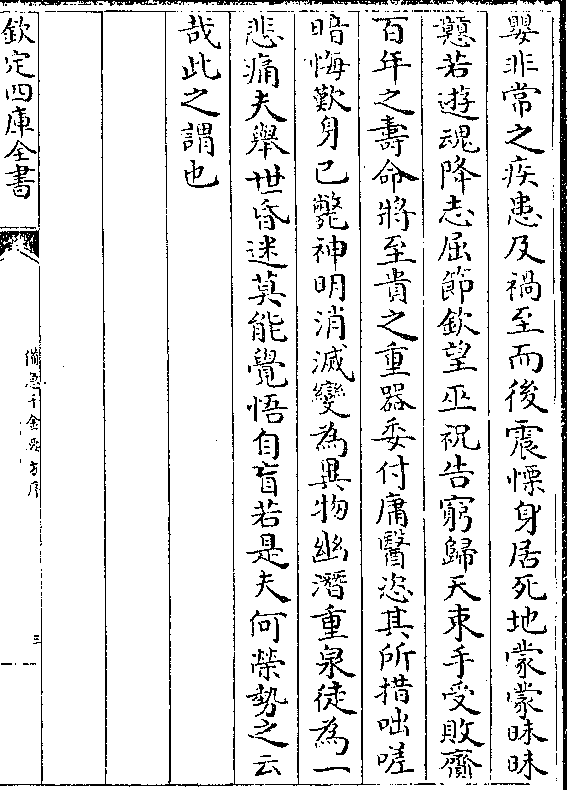 嬰非常之疾患及禍至而後震慄身居死地蒙蒙昧昧
戇若遊魂降志屈節欽望巫祝告窮歸天束手受敗齎
百年之壽命將至貴之重器委付庸醫恣其所措咄嗟
暗悔歎身已斃神明消滅變為異物幽潛重泉徒為一
悲痛夫舉世昏迷莫能覺悟自盲若是夫何榮勢之云
哉此之謂也
欽定四庫全書
備急千金要方序
三